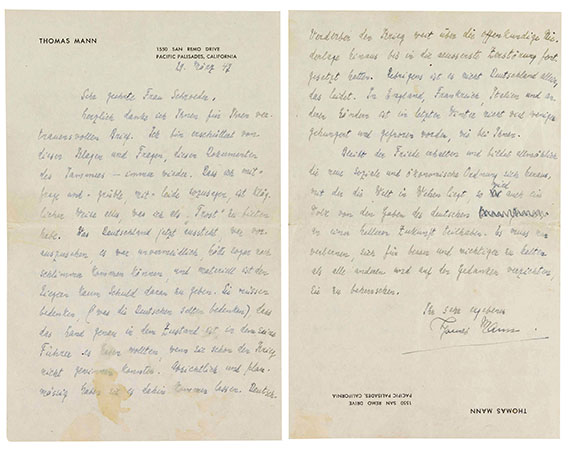 THOMAS MANN
1550 SAN REMO DRIVE
PACIFIC PALISADES, CALIFORNIA
21. März 47
Sehr geehrte Frau Schroeder,
herzlich danke ich Ihnen für Ihren ver-
trauensvollen Brief. Ich bin erschüttert von
diesen Klagen und Fragen, diesen Dokumenten
des Jammers – immer wieder. Dass ich mit-
frage und -grüble, mit-leide sozusagen, ist kläg-
licher Weise alles, was ich als „Trost" zu bieten
habe. Was Deutschland jetzt aussteht war vor-
auszusehen, es war unvermeidlich, hätte sogar noch
schlimmer kommen können und materiell ist den
Siegern kaum Schuld daran zu geben. Sie müssen
bedenken (was die Deutschen bedenken) dass
das Land genau in dem Zustand ist, in dem seine
Führer es wollten, wenn sie schon den Krieg
nicht gewinnen konnten. Absichtlich und plan-
mässig haben sie es dahin kommen lassen. Deutsch-
Verderber den Krieg weit über die offenkundige Nie-
derlage hinaus bis in die äusserste Zerstörung fort
gesetzt hatten. Uebrigens ist es nicht Deutschland allein,
das leidet. In England, Frankreich, Italien und an-
deren Ländern ist im letzten Winter nicht viel weniger
gehungert und gefroren worden, wie bei Ihnen.
Bleibt der Friede erhalten und bildet allmählich
die neue soziale und ökonomische Ordnung sich heraus,
mit der die Welt in Wehen liegt, so wird auch ein
Volk von den Gaben des deutschen
an einer helleren Zukunft teilhaben. Es muss nur
verlernen, sich für besser und wichtiger zu halten
als alle anderen und auf den Gedanken verzichten,
sie zu beherrschen.
Ihr sehr ergebener
Thomas Mann.
THOMAS MANN
1550 SAN REMO DRIVE
PACIFIC PALISADES, CALIFORNIA